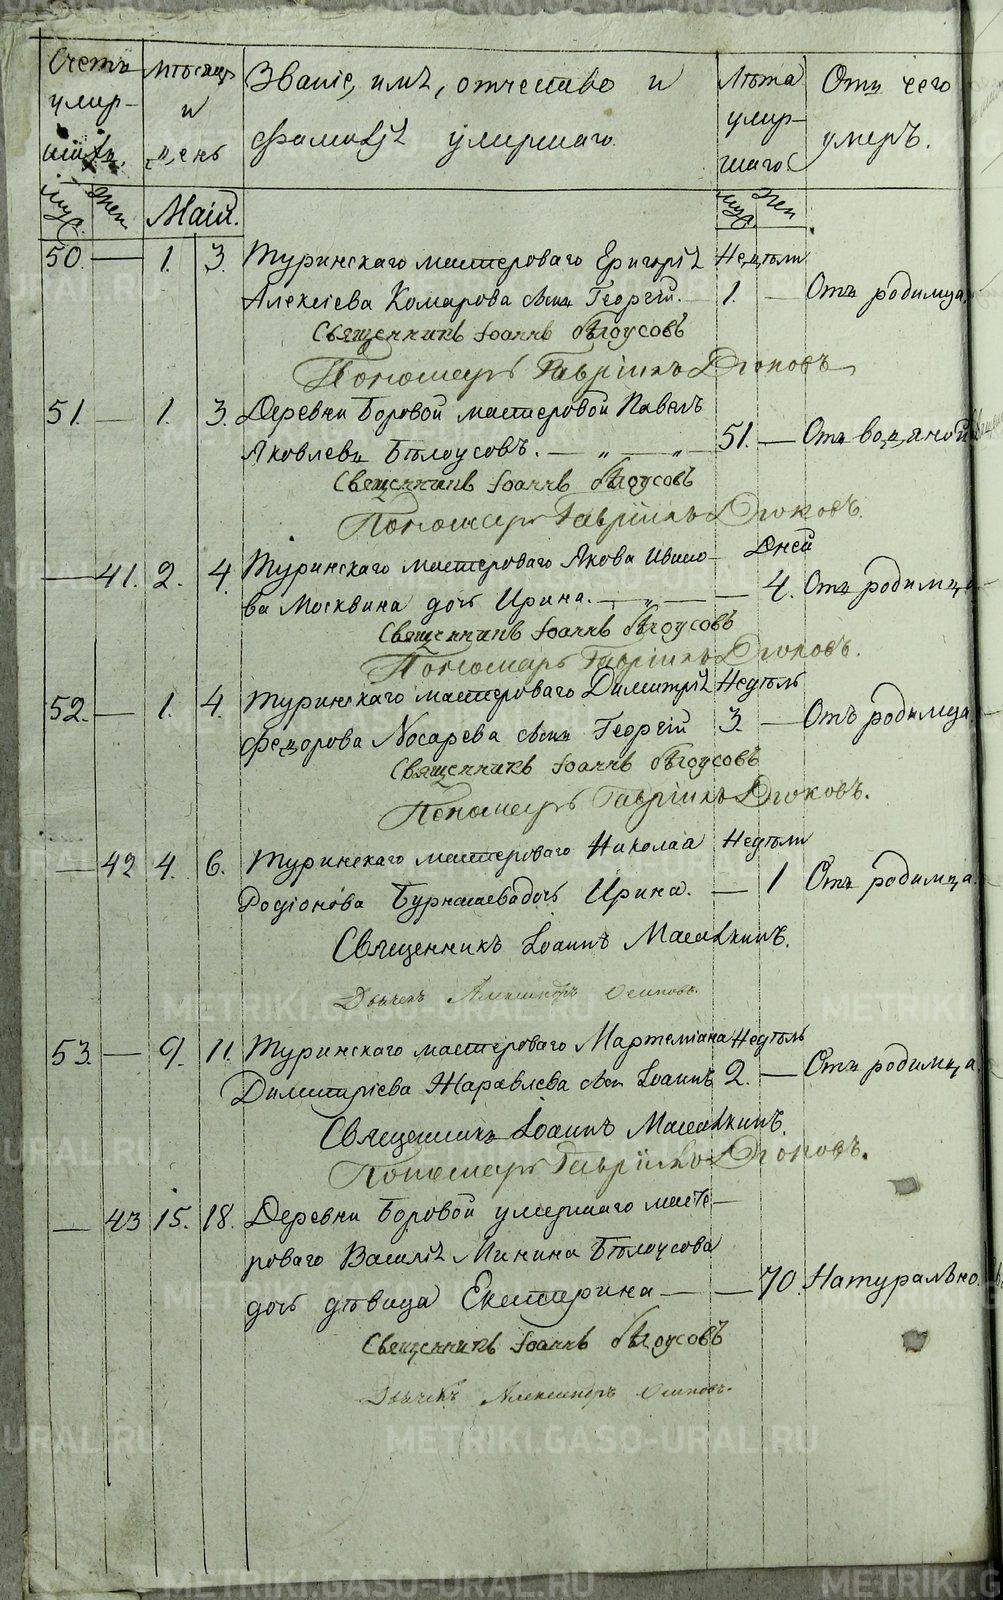 Счетъ умершихъ. Мѣсяцъ и день Званіе, имя, отчество и фамилія умершаго. Лѣта умершаго Отъ чего умеръ.
муж. жен. Маій. муж. жен.
50. — 1. 3. Туринскаго мастероваго Григорія Недѣли
Алексѣева Комарова сынъ Георгій. 1. — Отъ родимца.
Священникъ Іоаннъ Бѣлоусовъ
Пономарь Гавріилъ Дюковъ
51. — 1. 3. Деревни Боровой мастеровой Павелъ
Яковлевъ Бѣлоусовъ. — „ — „ — 51. — Отъ водяной
Священникъ Іоаннъ Бѣлоусовъ
Пономарь Гавріилъ Дюковъ.
— 41. 2. 4. Туринскаго мастероваго Якова Дней
ва Москвина дочь Ирина. — „ — — 4. Отъ родимца
Священникъ Іоаннъ Бѣлоусовъ
Пономарь Гавріилъ Дюковъ.
52. — 1. 4. Туринскаго мастероваго Димитрія Недѣль
Федорова Носарева сынъ Георгій 3. — Отъ родимца
Священникъ Іоаннъ Бѣлоусовъ
Пономарь Гавріилъ Дюковъ.
— 42 4. 6. Туринскаго мастероваго Николая Недѣли
Родіонова Бурнашева дочь Ирина. — 1 Отъ родимца.
Священникъ Іоаннъ Масалкинъ.
Дьячекъ Александръ Осиповъ.
53. — 9. 11. Туринскаго мастероваго Мартеміана Недѣль
Димитріева Жаравлева сынъ Іоаннъ 2. — Отъ родимца.
Священникъ Іоаннъ Масалкинъ.
Пономарь Гавріилъ Дюковъ.
— 43 15. 18. Деревни Боровой умершаго масте–
роваго Василія Минина Бѣлоусова
дочь дѣвица Екатерина — — 70. Натурально.
Священникъ Іоаннъ Бѣлоусовъ
Дьячекъ Александръ Осиповъ.
METRIKI.GASO-URAL.RU